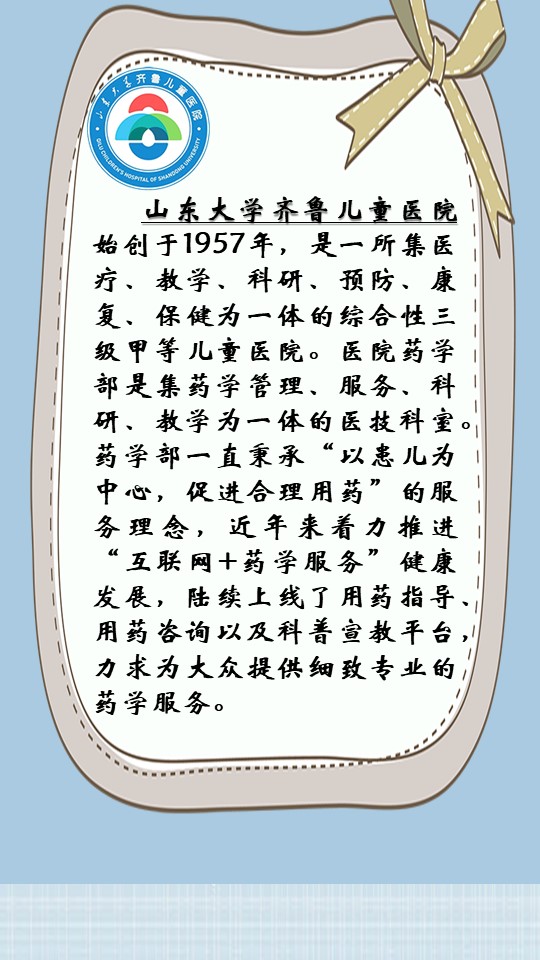 山东大学齐鲁儿童医院
QILU CHILDREN'S HOSPITAL OF SHANDONG UNIVERSITY
山东大学齐鲁儿童医院
始创于1957年，是一所集医
疗、教学、科研、预防、康
复、保健为一体的综合性三
级甲等儿童医院。医院药学
部是集药学管理、服务、科
研、教学为一体的医技科室。
药学部一直秉承“以患儿为
中心，促进合理用药”的服
务理念，近年来着力推进
“互联网+药学服务”健康
发展，陆续上线了用药指导、
用药咨询以及科普宣教平台，
力求为大众提供细致专业的
药学服务。